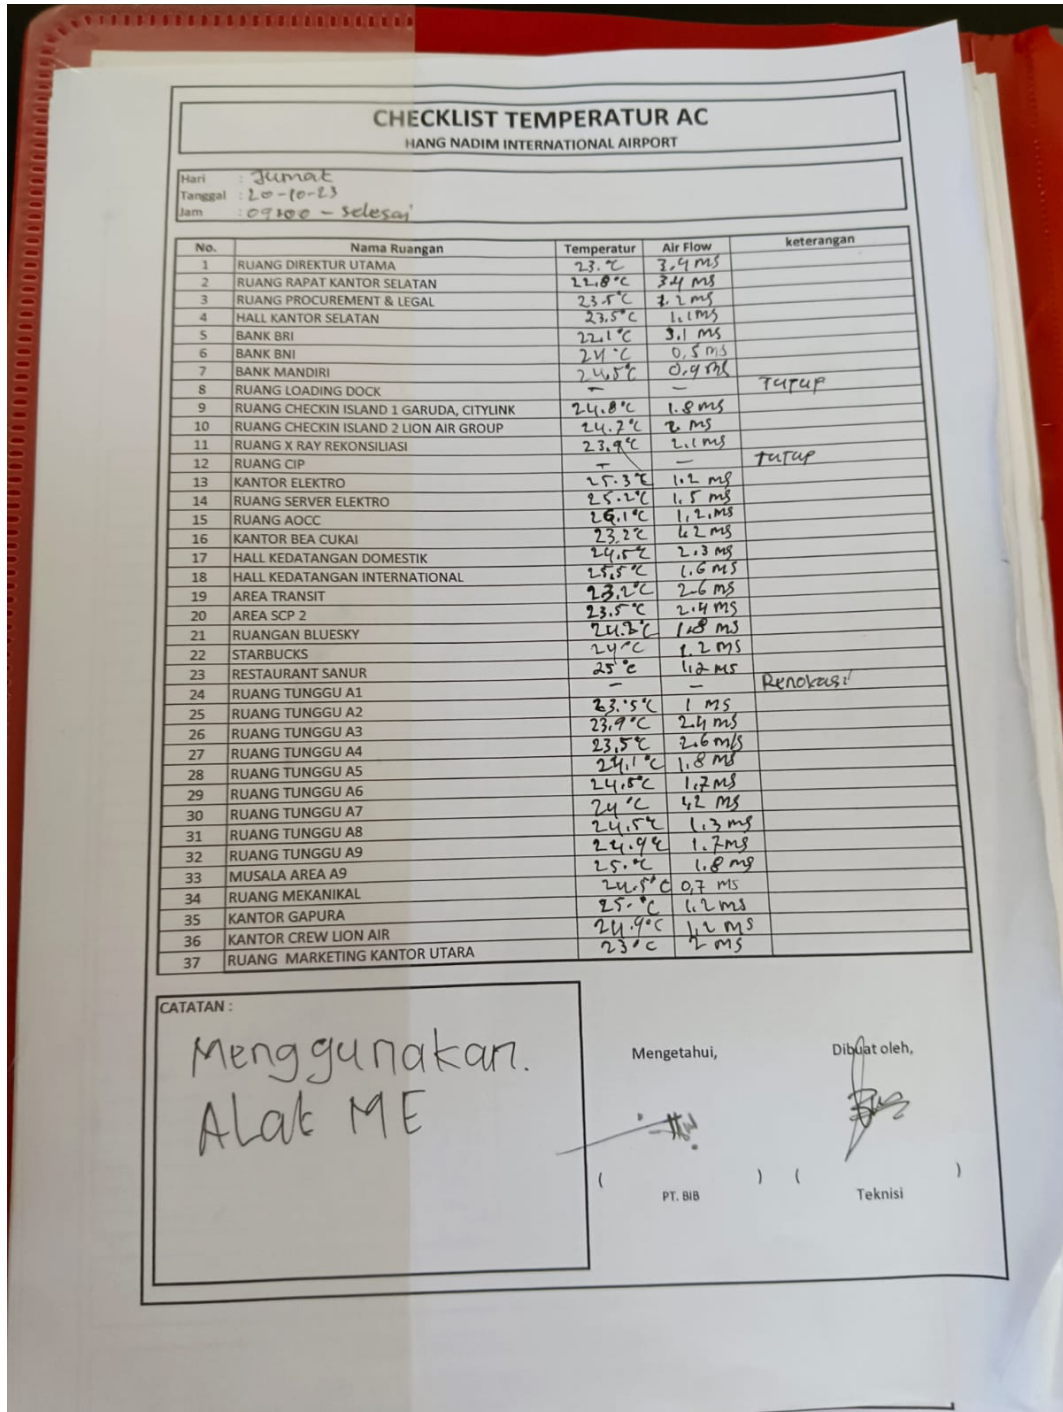 CHECKLIST TEMPERATUR AC
HANG NADIM INTERNATIONAL AIRPORT
Hari : Jumat
Tanggal : 20-10-23
Jam : 09:00 - selesai
No. Nama Ruangan Temperatur Air Flow keterangan
1 RUANG DIREKTUR UTAMA 23.°C 3.4 ms
2 RUANG RAPAT KANTOR SELATAN 22.8°C 3.4 ms
3 RUANG PROCUREMENT & LEGAL 23.5°C 1.2 ms
4 HALL KANTOR SELATAN 23.5°C 1.1 ms
5 BANK BRI 22.1°C 3.1 ms
6 BANK BNI 24°C 0,5 ms
7 BANK MANDIRI 24,5°C 0,9 ms
8 RUANG LOADING DOCK - - TUTUP
9 RUANG CHECKIN ISLAND 1 GARUDA, CITYLINK 24.8°C 1.8 ms
10 RUANG CHECKIN ISLAND 2 LION AIR GROUP 24.2°C 2 ms
11 RUANG X RAY REKONSILIASI 23.9°C 2.1 ms
12 RUANG CIP - - TUTUP
13 KANTOR ELEKTRO 25.3°C 1.2 ms
14 RUANG SERVER ELEKTRO 25.2°C 1.5 ms
15 RUANG AOCC 26.1°C 1,2 ms
16 KANTOR BEA CUKAI 23,2°C ms
17 HALL KEDATANGAN DOMESTIK 24,5°C 2.3 ms
18 HALL KEDATANGAN INTERNATIONAL 25,5°C 1.6 ms
19 AREA TRANSIT 23,2°C 2.6 ms
20 AREA SCP 2 23.5°C 2.4 ms
21 RUANGAN BLUESKY 1.8 ms
22 STARBUCKS 24°C 1.2 ms
23 RESTAURANT SANUR 25°C 1,2 ms
24 RUANG TUNGGU A1 - - Renovasi
25 RUANG TUNGGU A2 23.5°C 1 ms
26 RUANG TUNGGU A3 23,9°C 2.4 ms
27 RUANG TUNGGU A4 23,5°C 2.6 m/s
28 RUANG TUNGGU A5 24,1°C 1.8 ms
29 RUANG TUNGGU A6 24,5°C 1,7 ms
30 RUANG TUNGGU A7 24°C ms
31 RUANG TUNGGU A8 24,5°C 1.3 ms
32 RUANG TUNGGU A9 24.9°C 1.7 ms
33 MUSALA AREA A9 25.°C 1.8 ms
34 RUANG MEKANIKAL 24.5°C 0,7 ms
35 KANTOR GAPURA 25.°C 1.2 ms
36 KANTOR CREW LION AIR 24.9°C 1,2 ms
37 RUANG MARKETING KANTOR UTARA 23°C 2 ms
CATATAN :
Menggunakan.
Alat ME
Mengetahui, Dibuat oleh,
( ) ( )
PT. BIB Teknisi